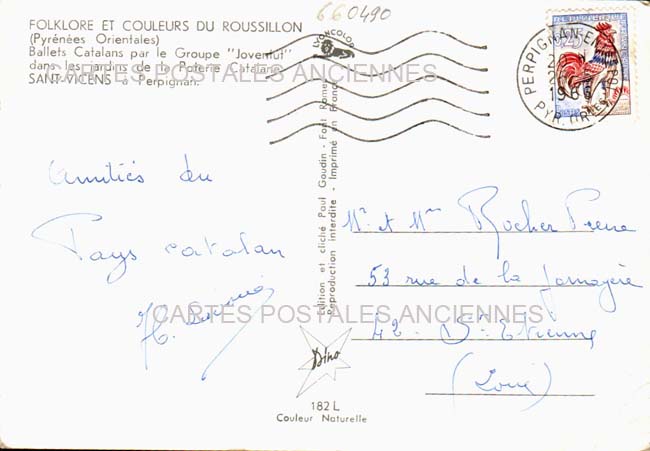 FOLKLORE ET COULEURS DU ROUSSILLON
(Pyrénées Orientales)
Ballets Catalans par le Groupe "Joventut"
dans les jardins de la Poterie Catalane
SANT-VICENS à Perpignan.
660490
LYONCOLOR
PERPIGNAN
1966
CARTES POSTALES ANCIENNES
Amitiés du
Pays catalan
Edition et cliché Paul Gaudin - Font Romeu
Reproduction interdite - Imprimé en France
Mr et Mme Rocher Pierre
53 rue de la
42 - St Etienne
(Loire)
CARTES POSTALES ANCIENNES
Dino
182 L
Couleur Naturelle